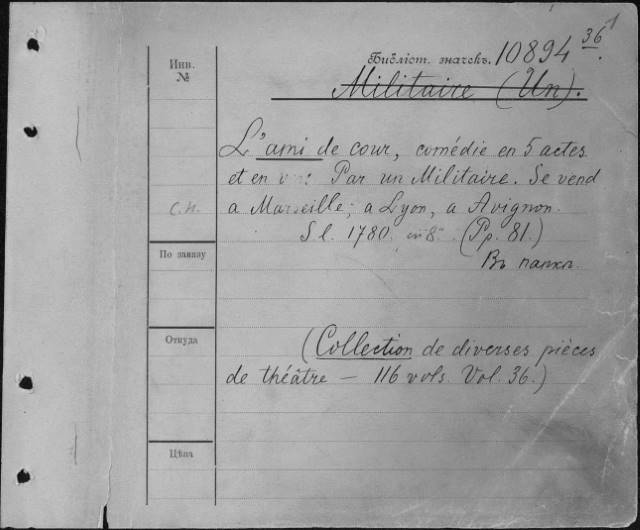 Инв.
№
Библіот. значекъ. 10894 36/1.
Militaire (Un).
L'ami de cour, comédie en 5 actes
et en Par un Militaire. Se vend
a Marseille; a Lyon, a Avignon.
С.Н.
S. l. 1780. in 8º. (Pp. 81.)
По заказу
Въ папкѣ.
Откуда
(Collection de diverses pièces
de théâtre — 116 vols. Vol. 36.)
Цѣна